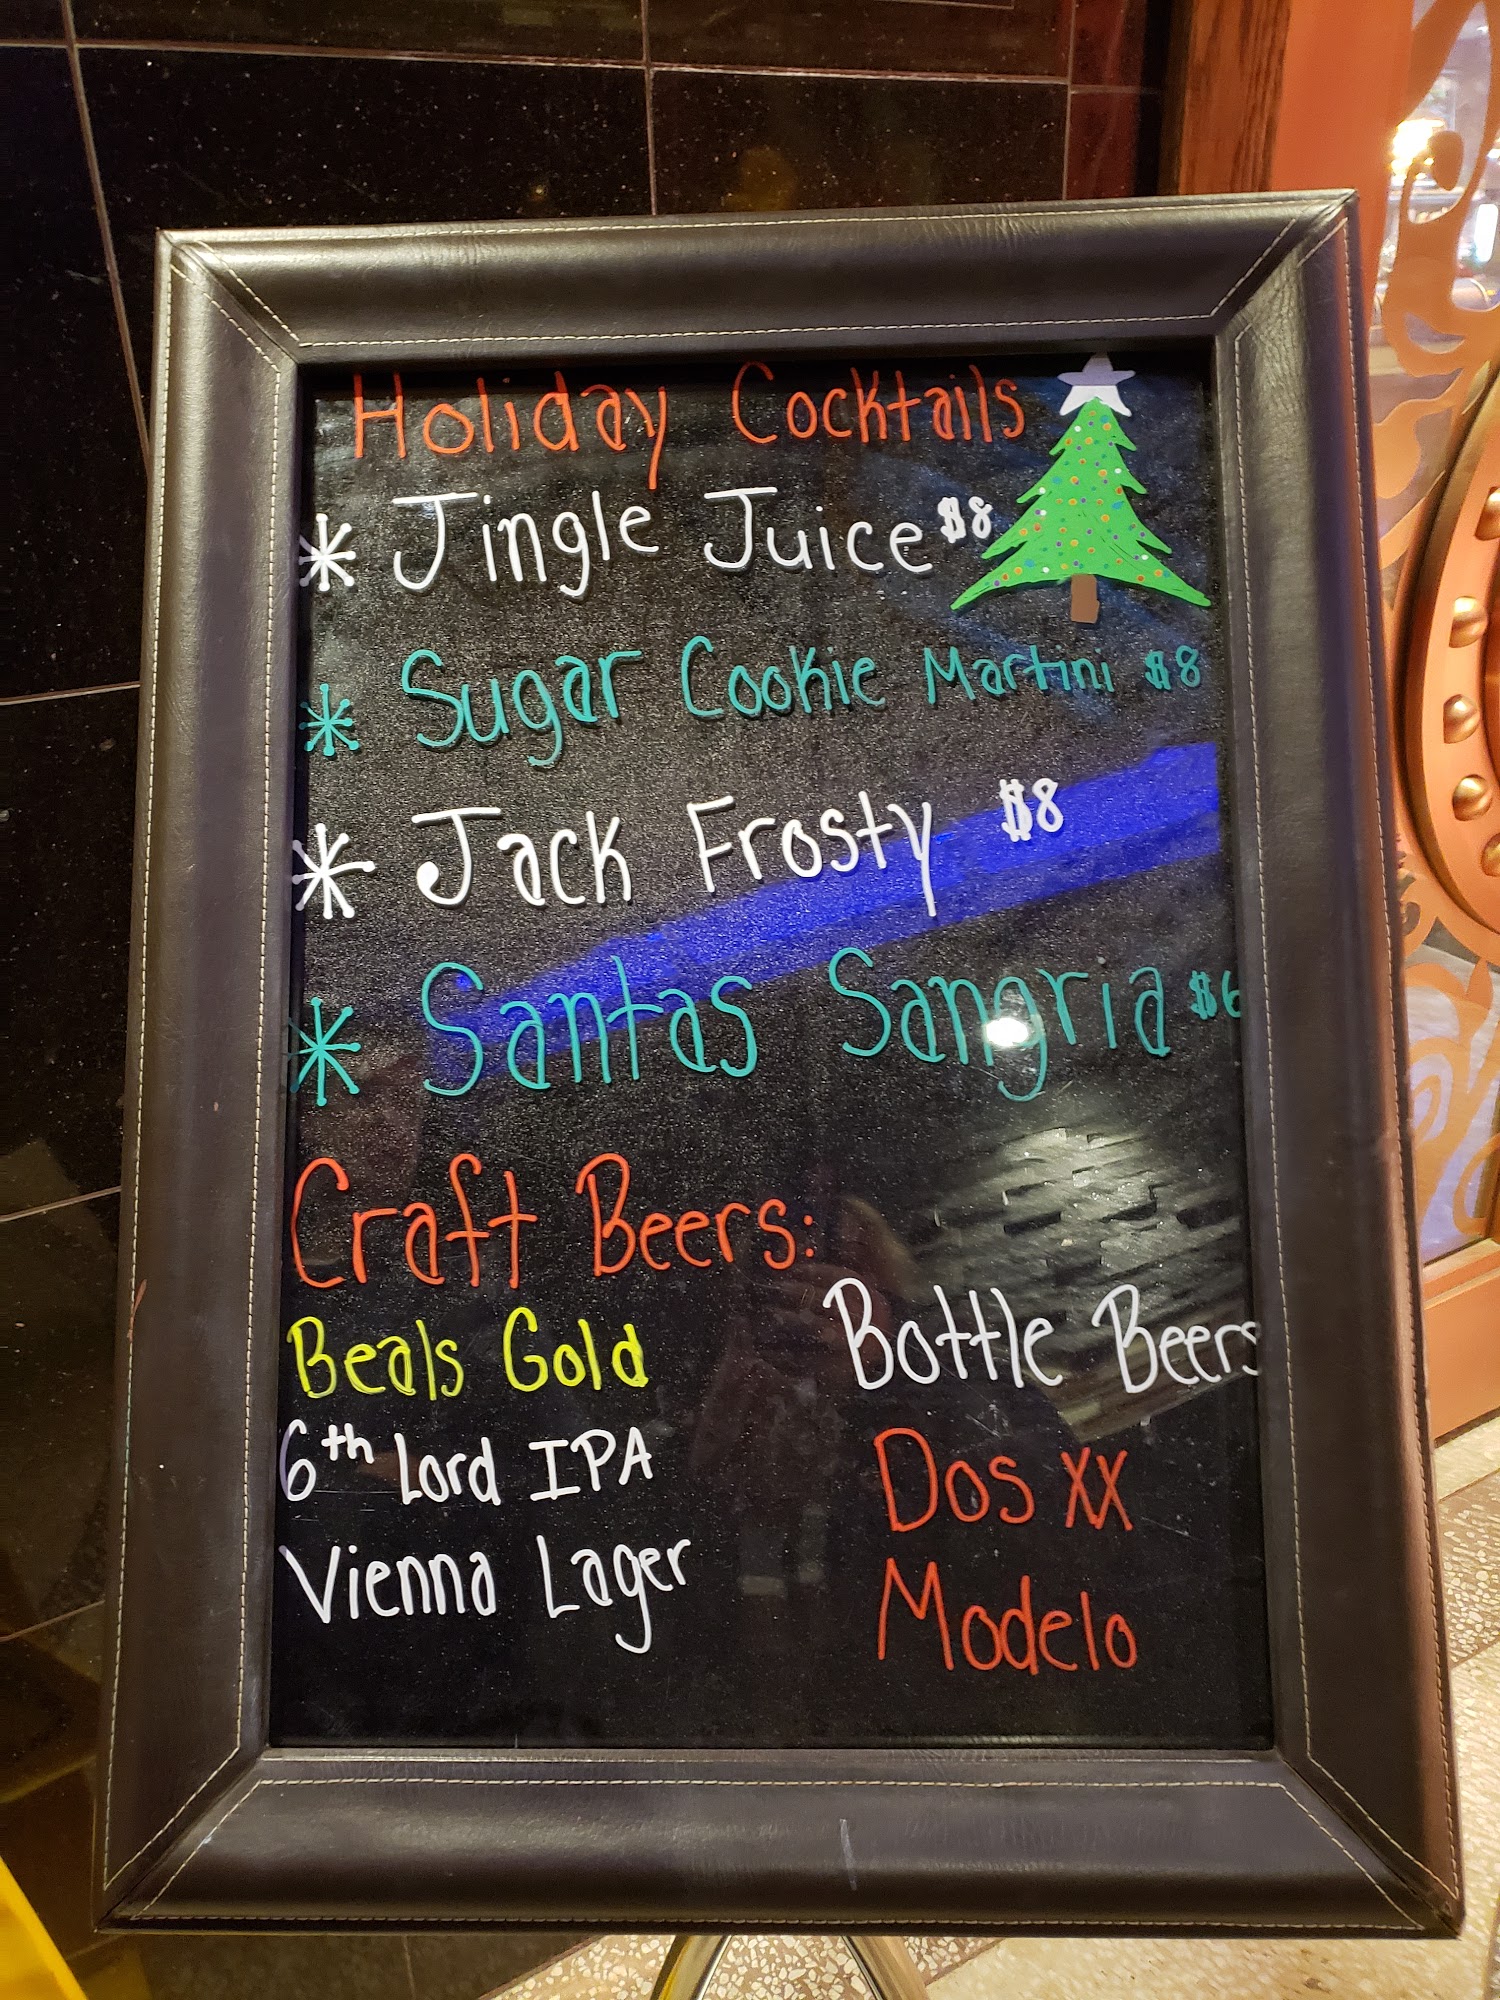 Holiday Cocktails
* Jingle Juice $8
* Sugar Cookie Martini $8
* Jack Frosty $8
* Santas Sangria $6
Craft Beers:
Beals Gold
6th Lord IPA
Vienna Lager
Bottle Beers
Dos XX
Modelo